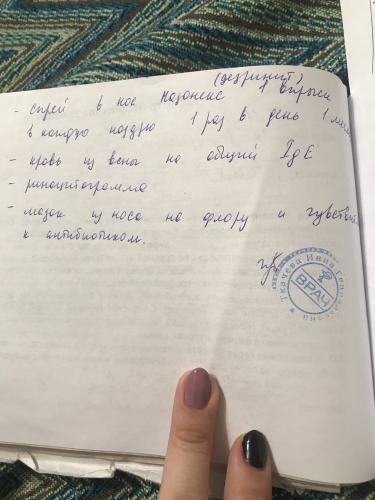 (дезринит)
- спрей в нос Назонекс 1 впрыск
в каждую ноздрю 1 раз в день 1
- кровь из вены на общий IgE
- риноцитограмма
- мазок из носа на флору и
к антибиотикам.
Ткачева Нина
ВРАЧ